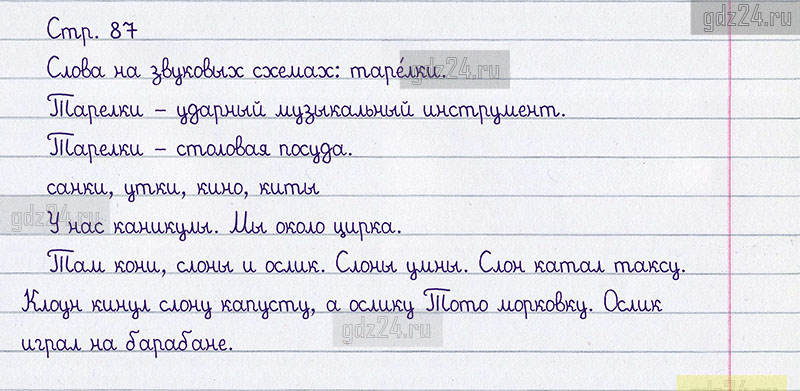 gdz24.ru
Стр. 87
Слова на звуковых схемах: таре́лки.
gdz24.ru
Тарелки – ударный музыкальный инструмент.
Тарелки – столовая посуда.
санки, утки, кино, киты
gdz24.ru
У нас каникулы. Мы около цирка.
Там кони, слоны и ослик. Слоны умны. Слон катал таксу.
Клоун кинул слону капусту, а ослику Тото морковку. Ослик
gdz24.ru
играл на барабане.